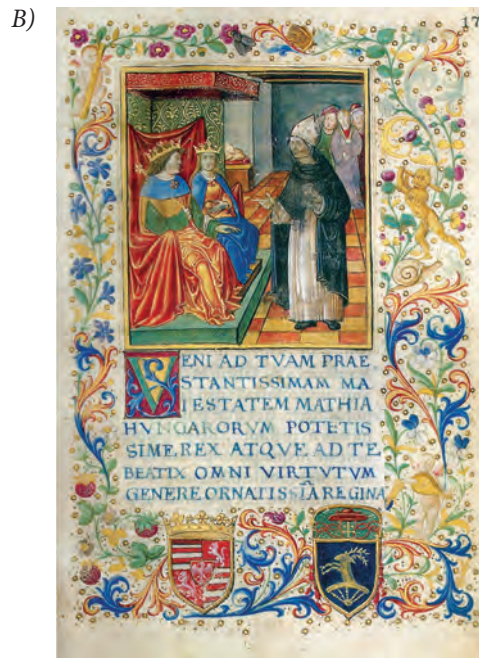 B)
17
VENI AD TVAM PRAE
STANTISSIMAM MA
IESTATEM MATHIA
HVNGARORVM POTETIS
SIME REX ATQVE AD TE
BEATIX OMNI VIRTVTVM
GENERE ORNATISSIÃ REGINA